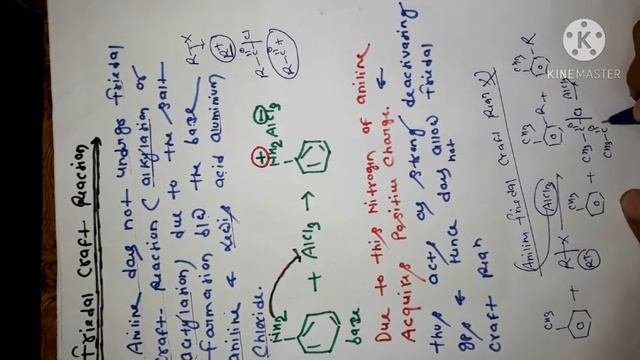 Friedal craft Reaction
Aniline does not undergo Friedal
craft- Reaction ( alkylation or
acylation) due to the salt
formation b/w the base
aniline & Lewis acid aluminium
chloride.
R-X
R+
R-C-Cl
R-C+
NH2 + AlCl3 → NH2 AlCl3
base
Due to this Nitrogen of aniline
Acquires Positive Charge. &
thus acts as strong deactivating
gps & hence does not allow Friedal
craft rxn
Aniline Friedal craft Rxn X
CH3 + R-X AlCl3 CH3 R+ CH3 R
R+
CH3 + CH3-C-Cl AlCl3
CH3-C
KINEMASTER